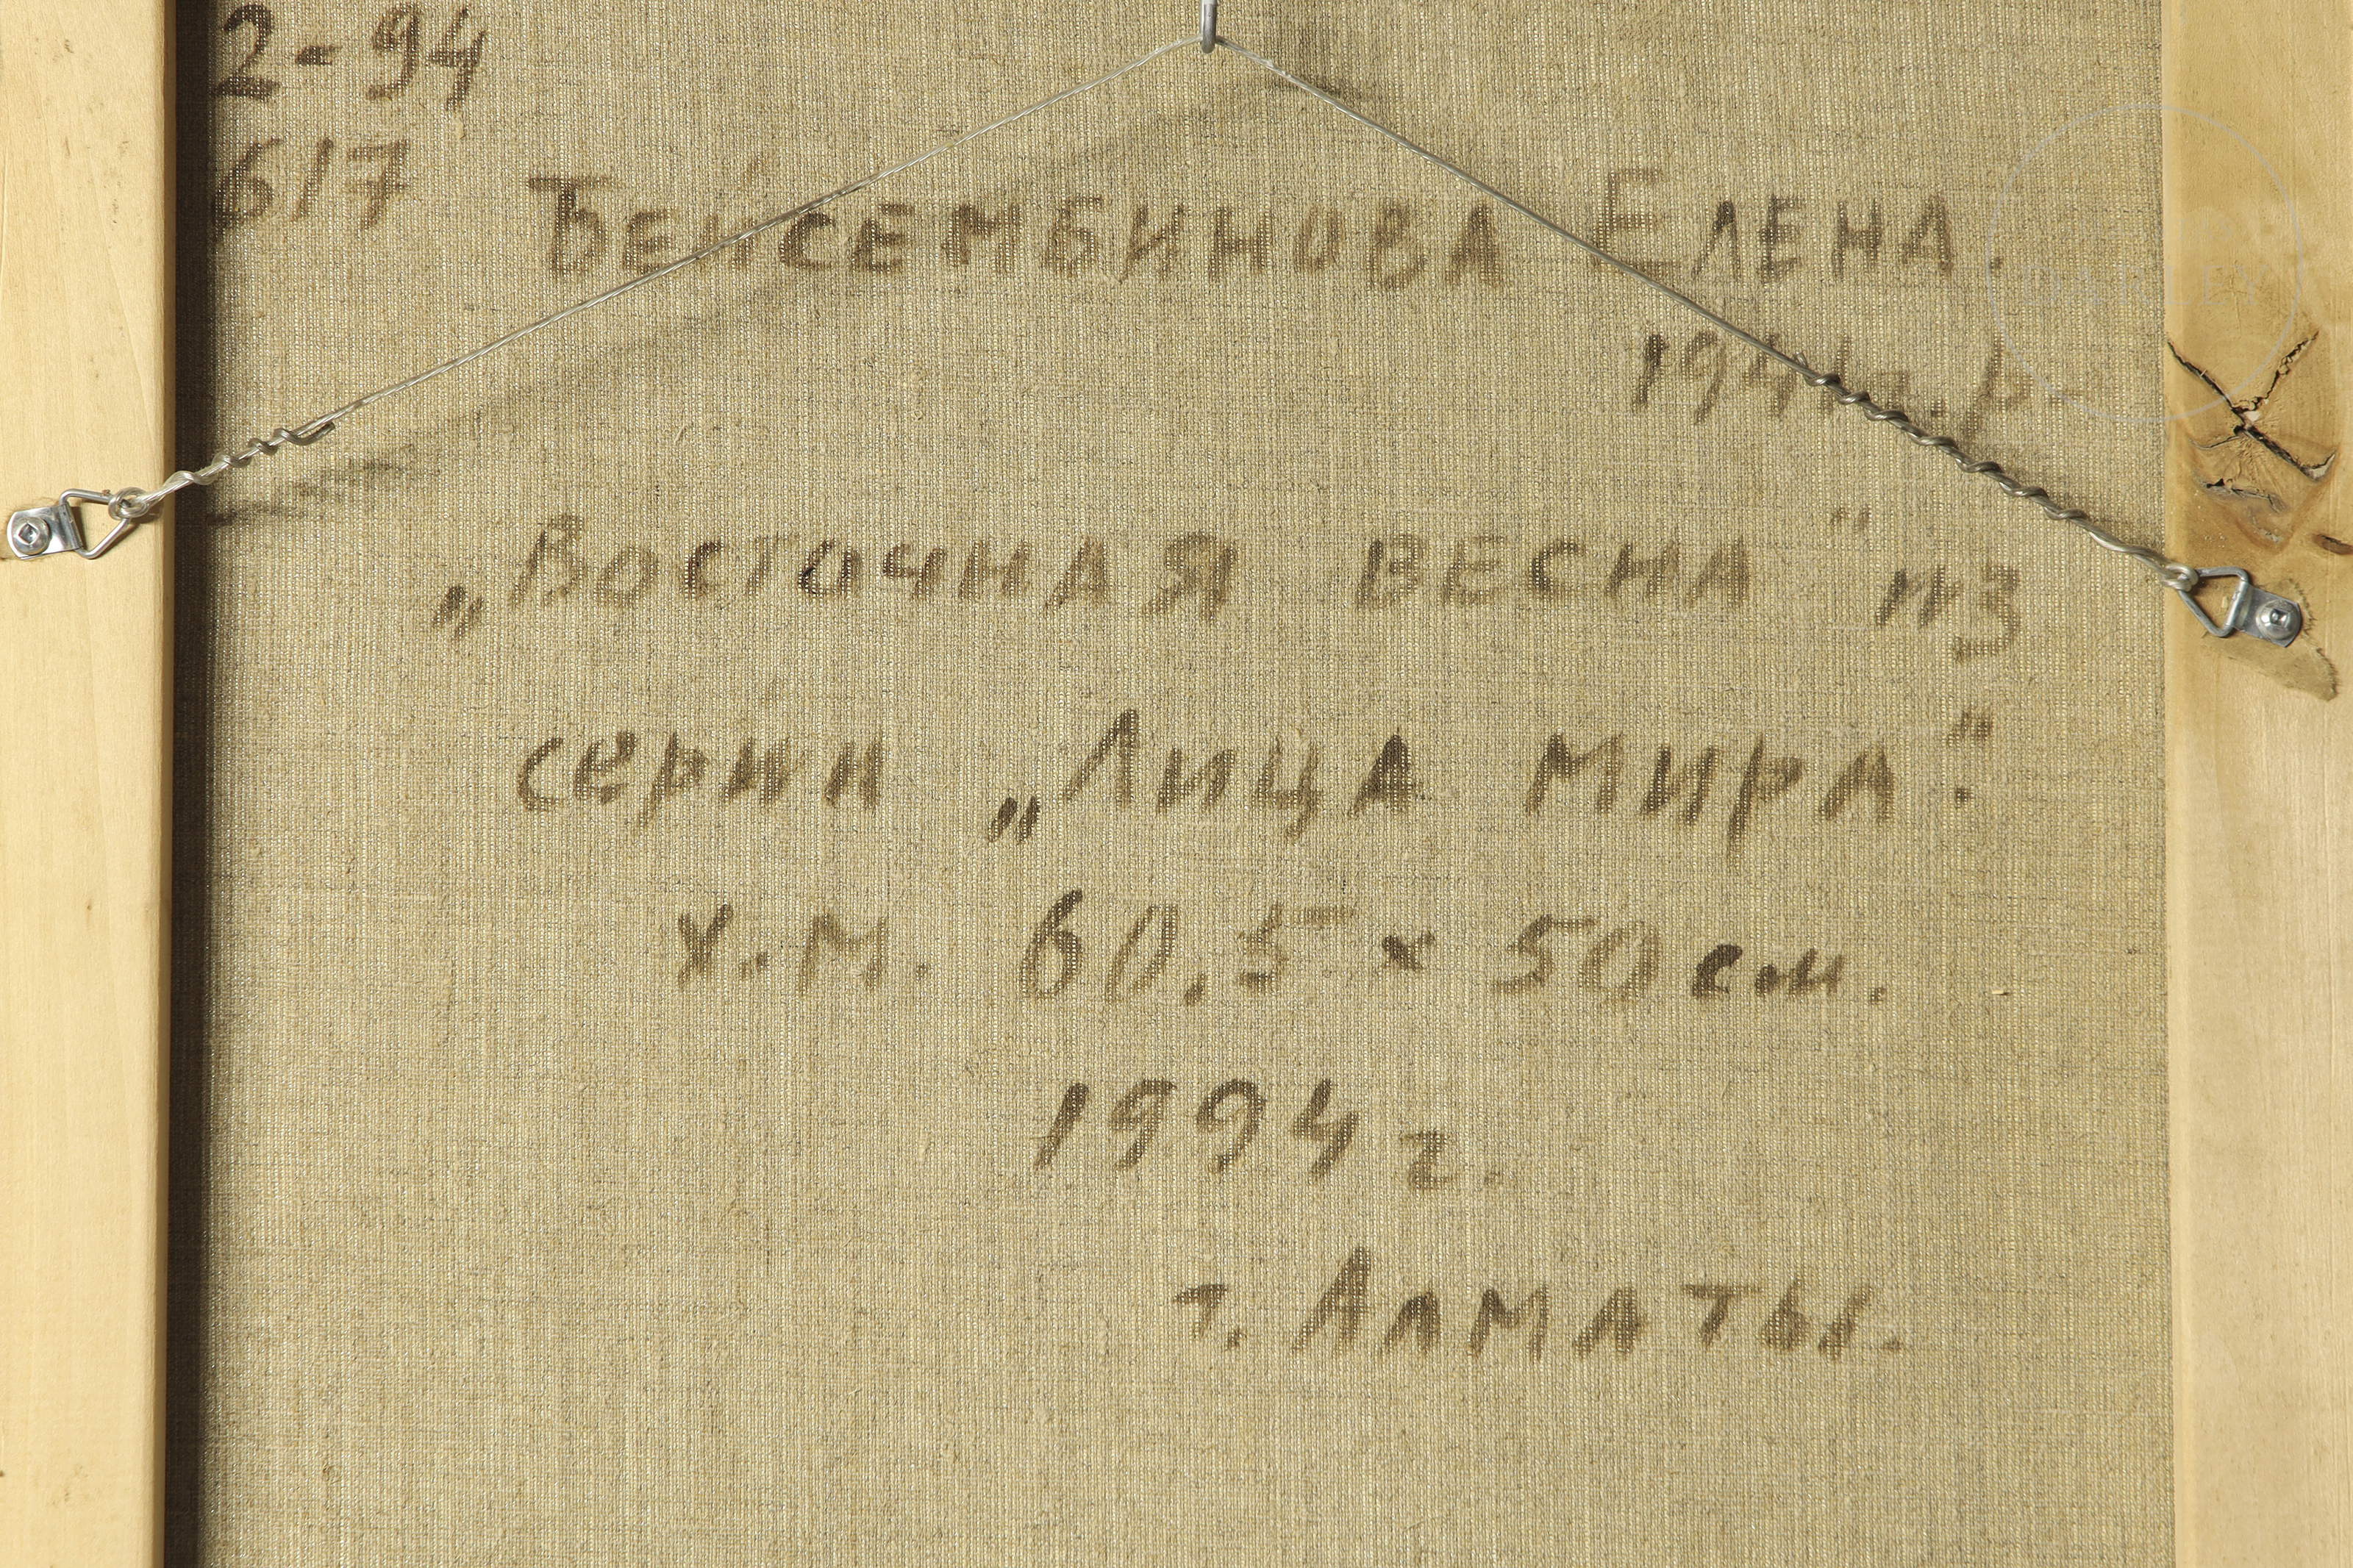 2-94
617
Бейсембинова Елена.
1941г.р.
„Восточная весна" из
серии „Лица мира".
х.м. 60,5 х 50 см.
1994 г.
г. Алматы.